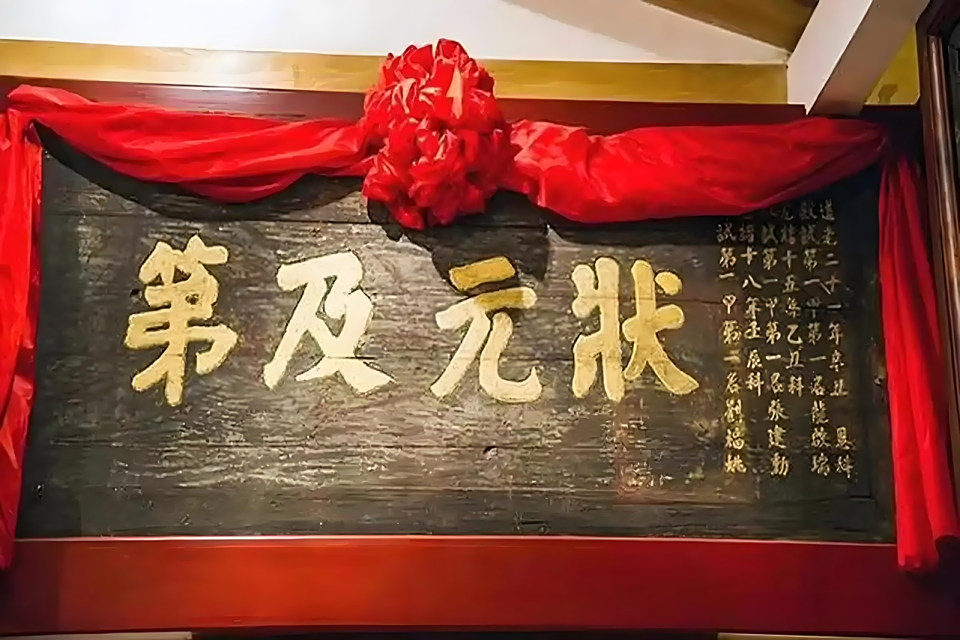 道光二十一年辛丑 恩科
殿試第一甲第一名龍啟瑞
光緒十五年己丑科
試第一甲第一名張建勳
緒十八年壬辰科
試第一甲第一名劉福姚
狀元及第